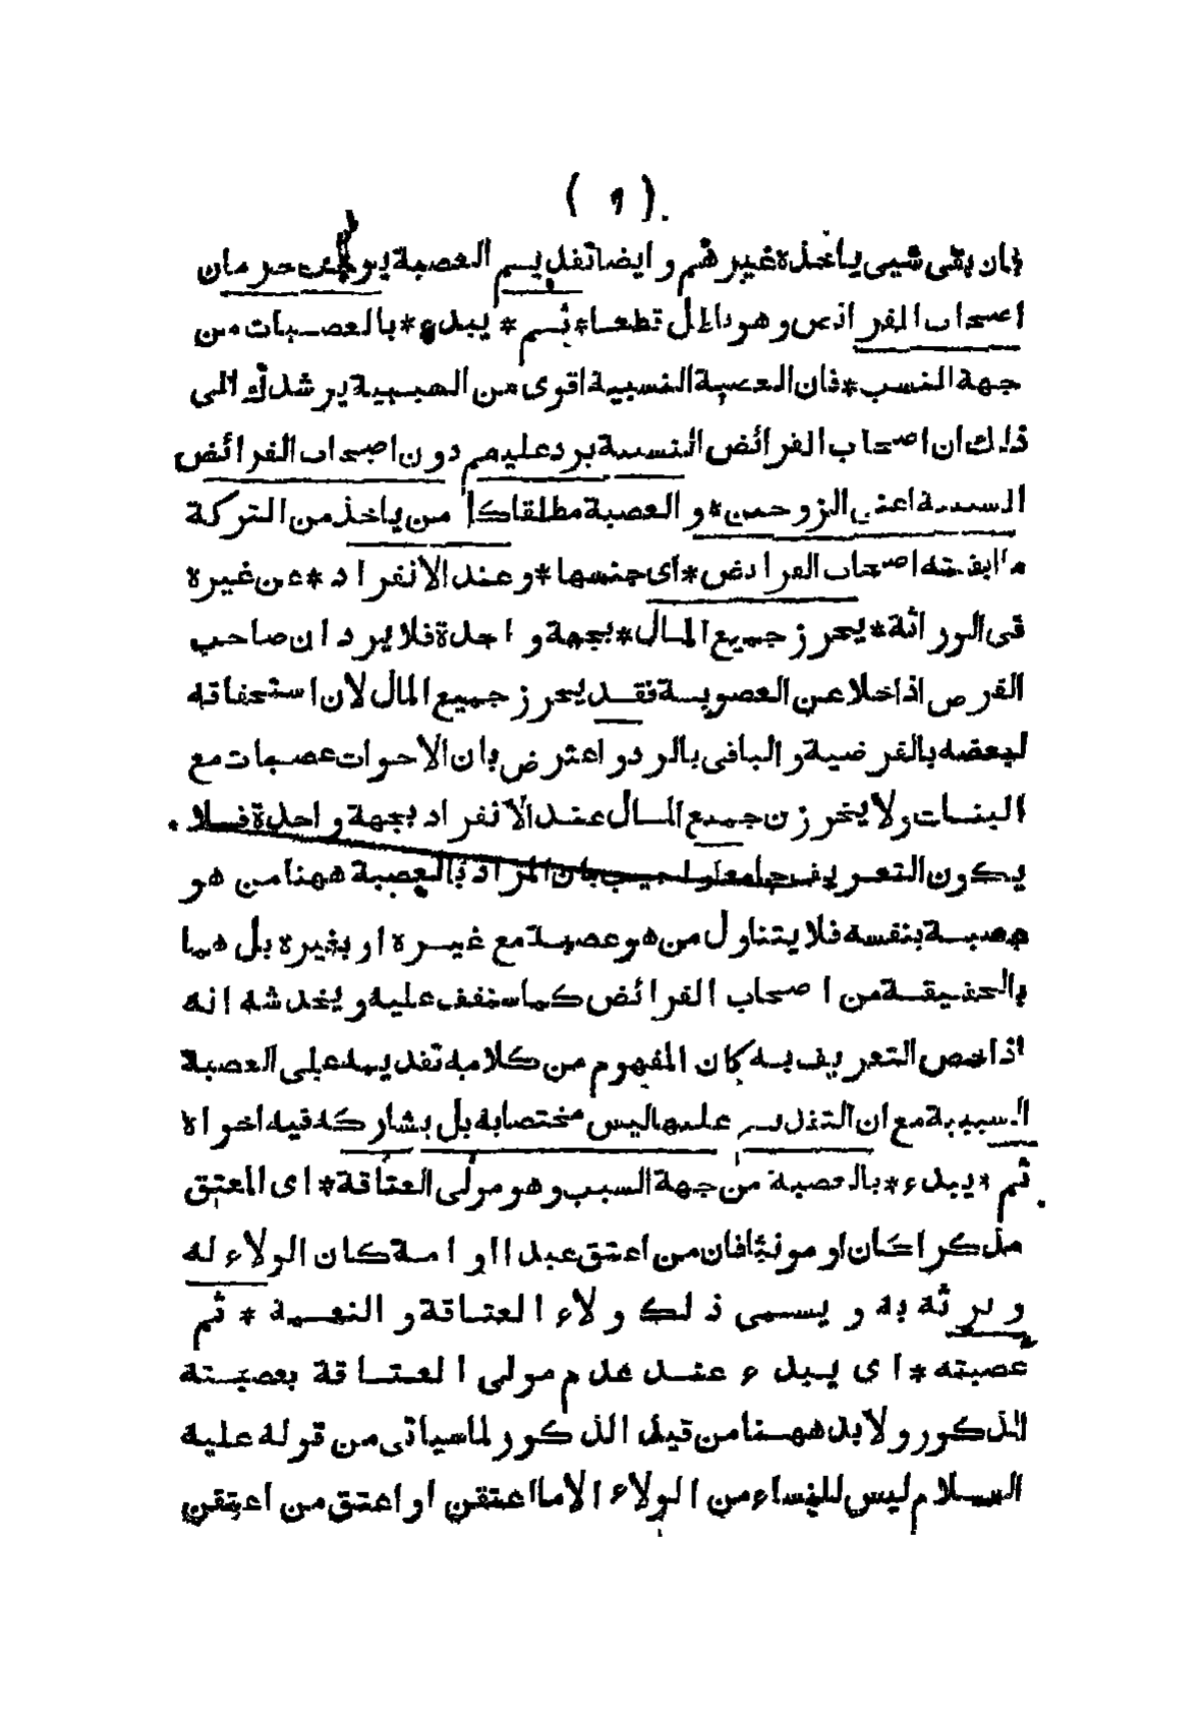 ( ٩ )
فان بقى شيى ياخذه غيرهم وايضا تقديم العصبة يوجب حرمان
اصحاب الفرائض وهو باطل قطعا * ثم * يبدء * بالعصبات من
جهة النسب * فان العصبة النسبية اقوى من السببية يرشدك الى
ذلك ان اصحاب الفرائض النسبية يرد عليهم دون اصحاب الفرائض
السببية اعنى الزوجين * و العصبة مطلقا كل من ياخذ من التركة
ما ابقته اصحاب الفرائض * اى جنسها * وعند الانفراد * عن غيره
فى الوراثة * يحرز جميع المال * بجهة واحدة فلا يرد ان صاحب
الفرض اذا خلا عن العصوبة فقد يحرز جميع المال لان استحقاقه
لبعضه بالفرضية و الباقى بالرد و اعترض بان الاخوات عصبات مع
البنات ولا يحرزن جميع المال عند الانفراد بجهة واحدة فلا
يكون التعريف جامعا واجيب بان المراد بالعصبة ههنا من هو
عصبة بنفسه فلا يتناول من هو عصبة مع غيره او بغيره بل هما
بالحقيقة من اصحاب الفرائض كما ستقف عليه و يخدشه انه
اذا خص التعريف به كان المفهوم من كلامه تقديمه على العصبة
السببية مع ان التقديم عليها ليس مختصا به بل يشاركه فيه اخواه
ثم * يبدء * بالعصبة من جهة السبب وهو مولى العتاقة * اى المعتق
مذكرا كان او مونثا فان من اعتق عبدا او امة كان الولاء له
و يرثه به و يسمى ذلك ولاء العتاقة و النعمة * ثم
عصبته * اى يبدء عند عدم مولى العتاقة بعصبته
الذكور ولا بد ههنا من قيد الذكور لما سياتى من قوله عليه
السلام ليس للنساء من الولاء الا ما اعتقن او اعتق من اعتقن